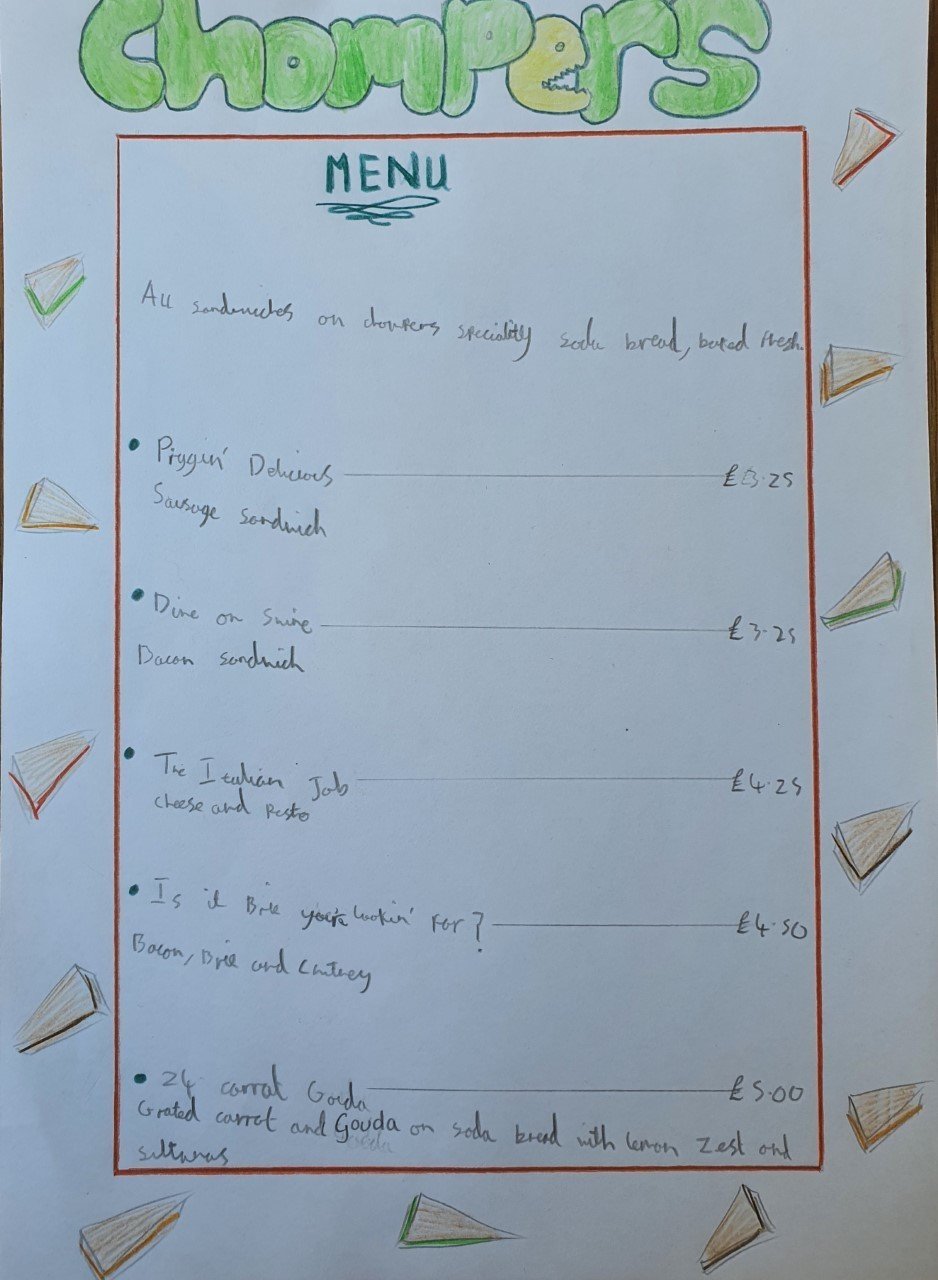 Chompers
MENU
All sandwiches on chompers speciality soda bread, baked fresh.
• Piggin' Delicious £3.25
Sausage sandwich
• Dine on Swine £3.25
Bacon sandwich
• The Italian Job £4.25
cheese and pesto
• Is it Brie you're lookin' for? £4.50
Bacon, Brie and Chutney
• 24 carrat Gouda £5.00
Grated carrot and Gouda on soda bread with lemon zest and
sultanas